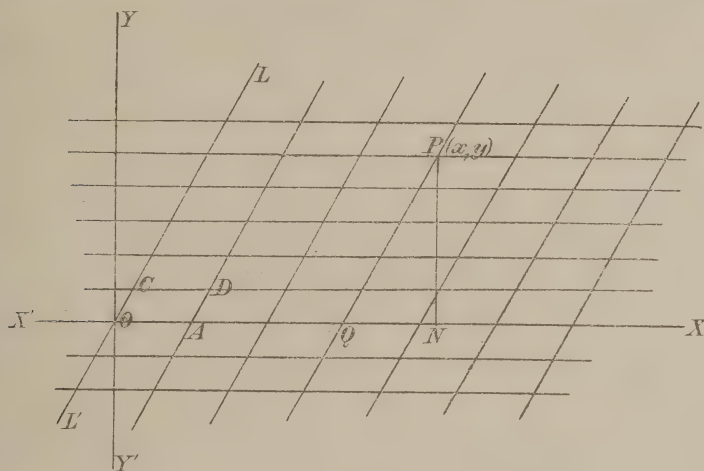 Y
L
P(x,y)
C
D
X'
O
A
Q
N
X
L'
Y'